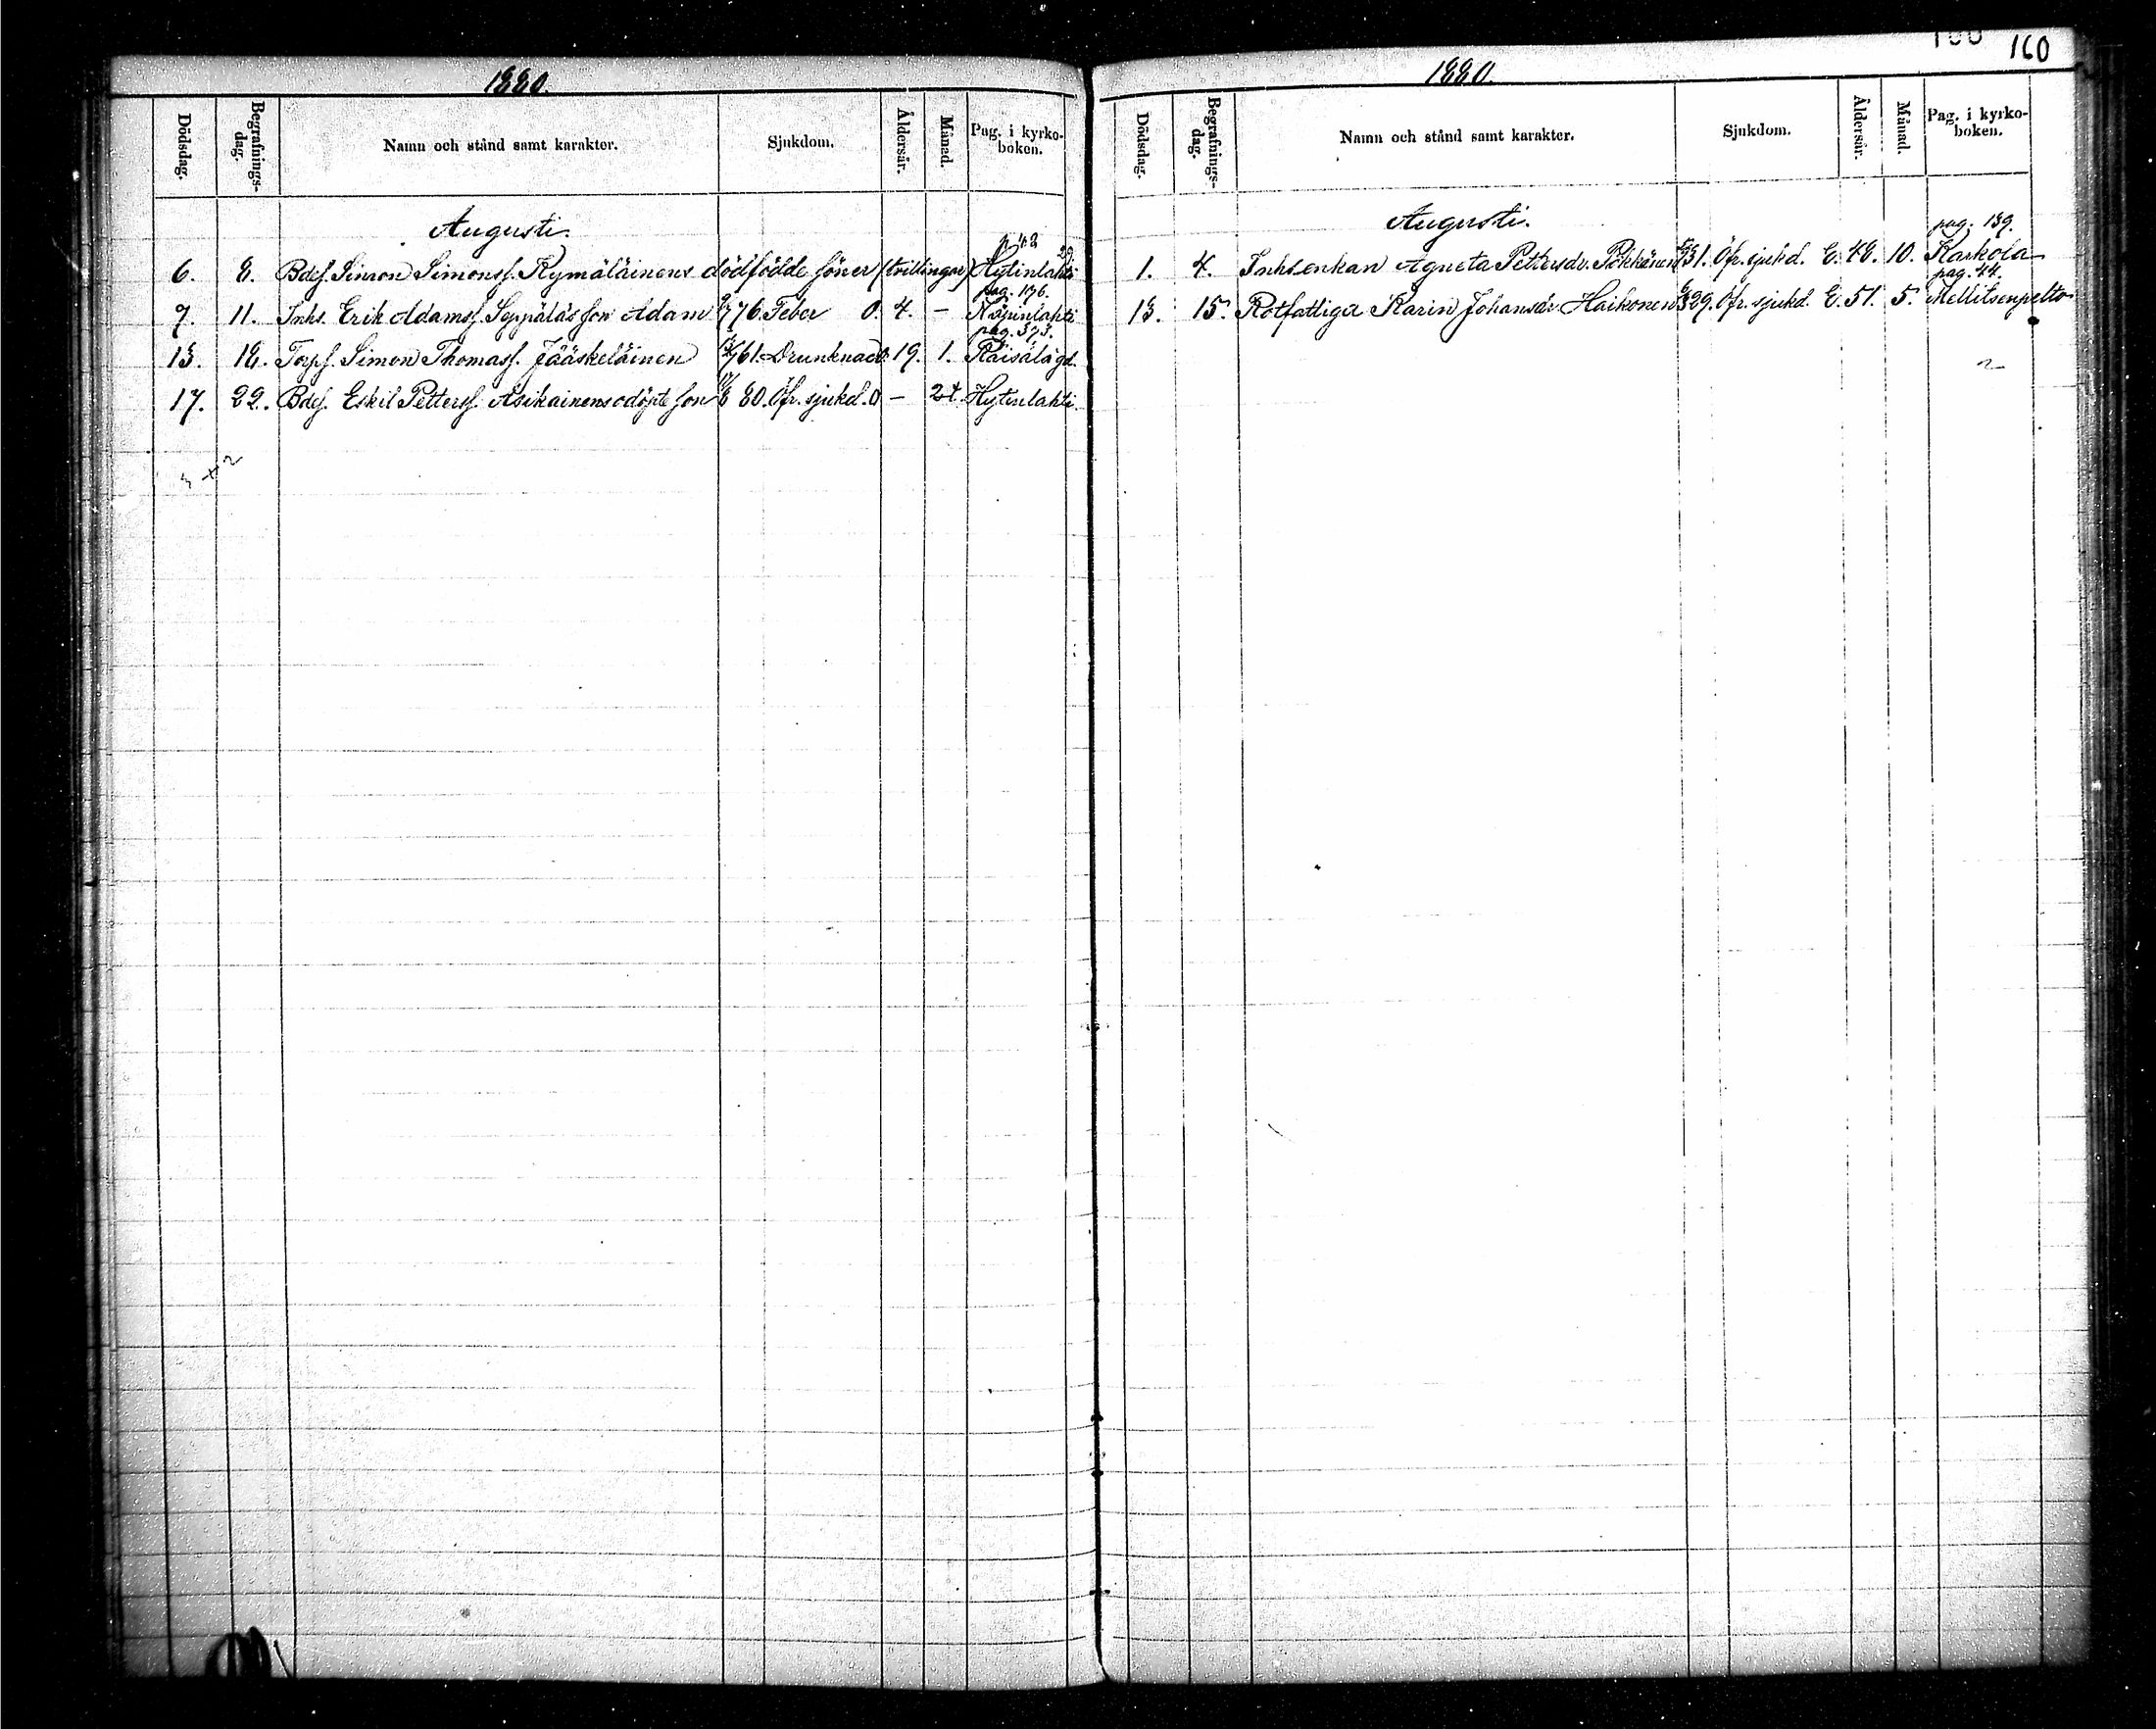 160
1880.
Dödsdag. Begrafningsdag. Namn och stånd samt karakter. Sjukdom. Åldersår. Månad. Pag. i kyrkoboken.
Augusti.
6. 8. Bdes. Simon Simonss. Kymäläinens dödfödde söner (tvillingar) Hytinlahti
pag. 176.
7. 11. Inhs. Erik Adamss. Seppäläs son Adam 76. Feber O. 4. – Käpinlahti
pag. 373.
13. 18. Torps. Simon Thomass. Jääskeläinen 61. Drunknad O. 19. 1. Räisälägd.
17. 22. Bdes. Eskil Petterss. Asikainens odöpte son 80. Öfr. sjukd. O – 24. Hytinlahti.
4 + 2
1880.
Dödsdag. Begrafningsdag. Namn och stånd samt karakter. Sjukdom. Åldersår. Månad. Pag. i kyrkoboken.
Augusti.
pag. 139.
1. 4. Inhs.enkan Agneta Pettersdr. Pökkönen 31. Öfr. sjukd. E. 48. 10. Karkola
pag. 44.
13. 15. Rotfattiga Karin Johansdr. Haikonen 29. Öfr. sjukd. E. 51. 5. Mellitsenpelto
2